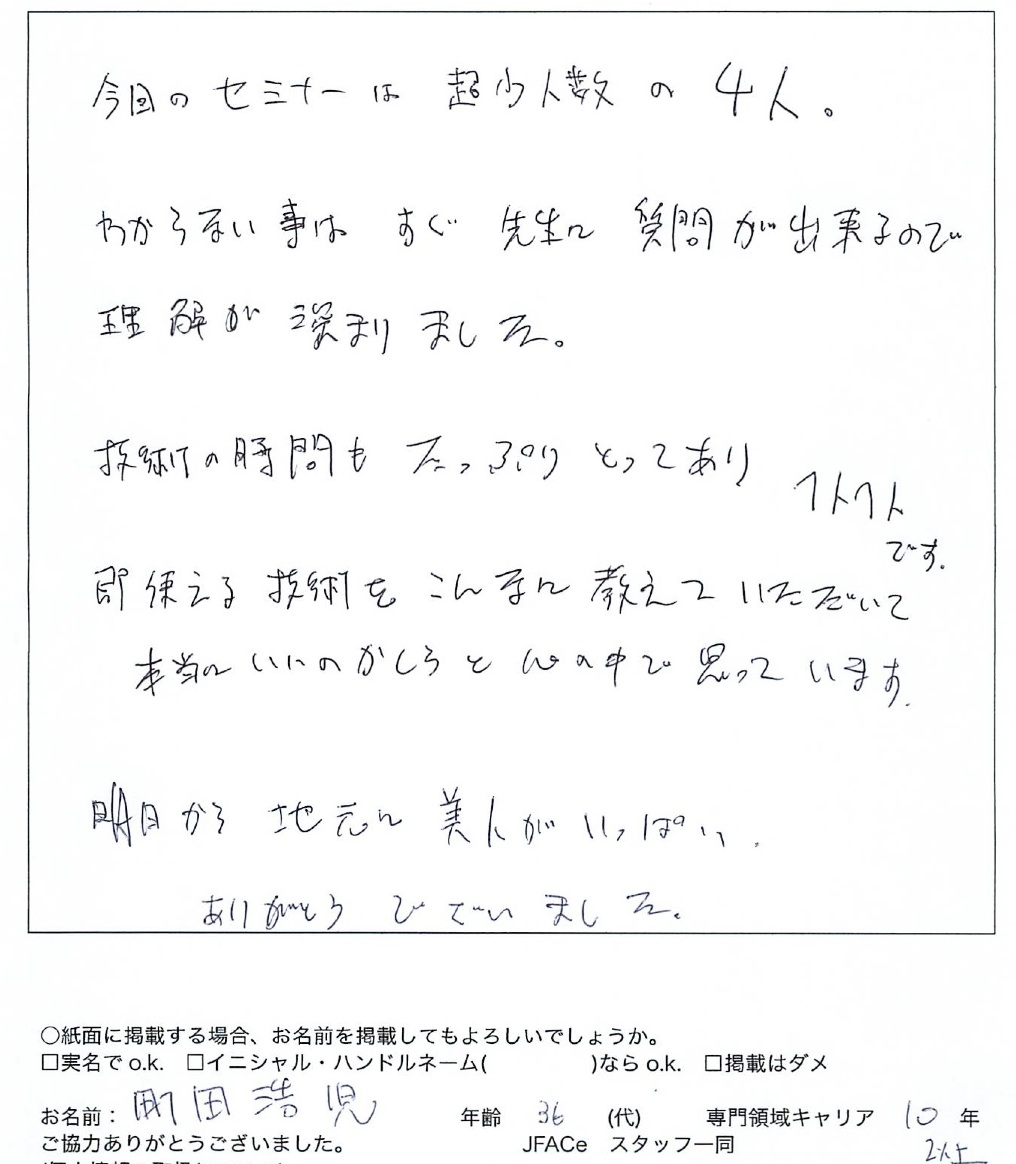 今回のセミナーは 超少人数の 4人。
わからない事は すぐ 先生に 質問が出来るので
理解が 深まりました。
技術の時間も たっぷり とってあり
ヘトヘト
です.
即使える 技術を こんなに 教えて いただいて
本当に いいのかしらと 心の中で 思って います.
明日から 地元に 美人が いっぱい.
ありがとう ございました。
○紙面に掲載する場合、お名前を掲載してもよろしいでしょうか。
□実名で o.k. □イニシャル・ハンドルネーム( )なら o.k. □掲載はダメ
お名前: 町田 浩児 年齢 36 (代) 専門領域キャリア 10 年
以上
ご協力ありがとうございました。 JFACe スタッフ一同